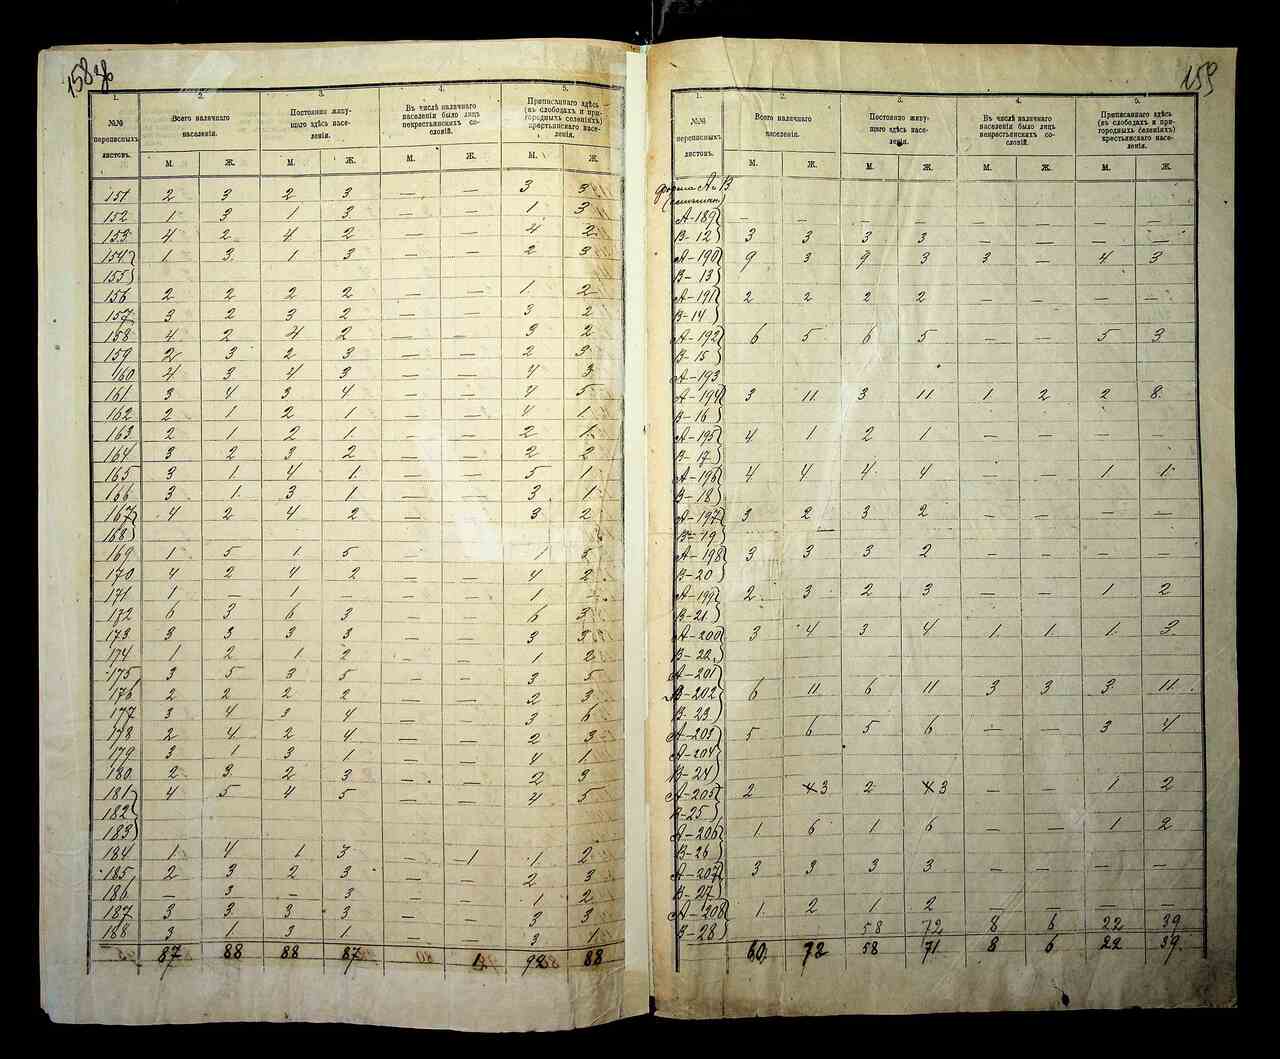 158 об
1. 2. 3. 4. 5.
№№ переписныхъ листовъ.
Всего наличнаго населенія.
Постоянно живущаго здѣсь населенія.
Въ числѣ наличнаго населенія было лицъ некрестьянскихъ сословій.
Приписаннаго здѣсь (въ слободахъ и пригородныхъ селеніяхъ) крестьянскаго населенія.
М. Ж. М. Ж. М. Ж. М. Ж.
151 2 3 2 3 — — 3 3
152 1 3 1 3 — — 1 3
153 4 2 4 2 — — 4 2
154 1 3 1 3 — — 2 3
155
156 2 2 2 2 — — 1 2
157 3 2 3 2 — — 3 2
158 4 2 4 2 — — 3 2
159 2 3 2 3 — — 2 3
160 4 3 4 3 — — 4 3
161 3 4 3 4 — — 4 5
162 2 1 2 1 — — 4 1
163 2 1 2 1 — — 2 1
164 3 2 3 2 — — 2 2
165 3 1 4 1 — — 5 1
166 3 1 3 1 — — 3 1
167 4 2 4 2 — — 3 2
168
169 1 5 1 5 — — 1 5
170 4 2 4 2 — — 4 2
171 1 — 1 — — — 1 —
172 6 3 6 3 — — 6 3
173 3 3 3 3 — — 3 3
174 1 2 1 2 — — 1 2
175 3 5 3 5 — — 3 5
176 2 2 2 2 — — 2 3
177 3 4 3 4 — — 3 6
178 2 4 2 4 — — 2 3
179 3 1 3 1 — — 4 1
180 2 3 2 3 — — 2 3
181 4 5 4 5 — — 4 5
182
183
184 1 4 1 3 — 1 1 2
185 2 3 2 3 — — 2 3
186 — 3 — 3 — — 1 2
187 3 3 3 3 — — 3 3
188 3 1 3 1 — — 3 1
87 88 88 87 1 92 88
159
1. 2. 3. 4. 5.
№№ переписныхъ листовъ.
Всего наличнаго населенія.
Постоянно живущаго здѣсь населенія.
Въ числѣ наличнаго населенія было лицъ некрестьянскихъ сословій.
Приписаннаго здѣсь (въ слободахъ и пригородныхъ селеніяхъ) крестьянскаго населенія.
М. Ж. М. Ж. М. Ж. М. Ж.
форма А и В
А-189 — — — — — — — —
В-12 3 3 3 3 — — — —
А-190 9 3 9 3 3 — 4 3
В-13
А-191 2 2 2 2 — — — —
В-14
А-192 6 5 6 5 — — 5 3
В-15
А-193
А-194 3 11 3 11 1 2 2 8
В-16
А-195 4 1 2 1 — — — —
В-17
А-196 4 4 4 4 — — 1 1
В-18
А-197 3 2 3 2 — — — —
В-19
А-198 3 3 3 2 — — — —
В-20
А-199 2 3 2 3 — — 1 2
В-21
А-200 3 4 3 4 1 1 1 3
В-22
А-201
В-202 6 11 6 11 3 3 3 11
В-23
А-203 5 6 5 6 — — 3 4
А-204
В-24
А-205 2 3 2 3 — — 1 2
В-25
А-206 1 6 1 6 — — 1 2
В-26
А-207 3 3 3 3 — — — —
В-27
А-208 1 2 1 2 — — — —
В-28 58 72 8 6 22 39
60 72 58 71 8 6 22 39